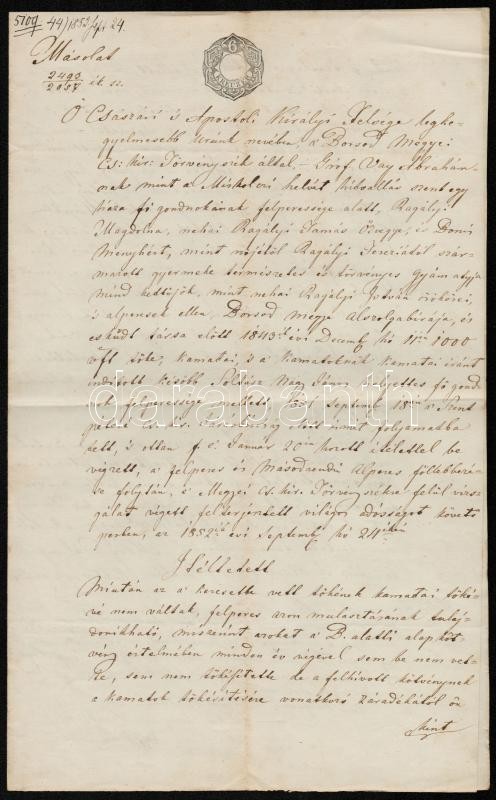 5109 44/1852
Másolat
2490
2057 it. sz.
6
Ő Császári s Apostoli Királyi Felsége legke-
gyelmesebb Urunk nevében, a Borsod Megyei
Cs: kir: Törvényszék által, – Gróf Vay Ábrahám-
nak mint a Miskolczi helvét hitvallás szentegy-
háza fő gondnokának felperessége alatt, Ragályi
Magdolna, néhai Ragályi Tamás özvegye, is
Menyhért, mint nőjétől Ragályi Teréziától szár-
mazott gyermeke természetes és törvényes gyám attyja
mind kettőjök, mint néhai Ragályi István örökösei,
is alperesek ellen, Borsod megye Alszolgabirája, és
esküdt társa előtt 1843ik évi Decemb. hó 11én 1000
vft tőke, kamatai, s a kamatoknak kamatai iránt
indított később Soltész Nagy János helyettes fő gond
nok felperessége mellett, Septemb 18 a Szent
péteri cs. kir. előtt újra folyamatba
tett, s ottan f. é. Január 20án hozott itélettel be
végzett, a felperes és másodrendű Alperes fellebbezé-
se folytán, a Megyei cs. kir. Törvényszékre felül vizs-
gálat végett felterjesztett világos adósságot követő
perben, az 1852ik évi Septemb. hó 24ikén
Itéltetett
Miután az a keresetbe vett tőkének kamatai tőké-
vé nem váltak, felperes azon mulasztásának tulaj-
donítható, miszerint azokat a B. alatti alap köt-
vény értelmében minden év végével sem be nem vet-
te, sem nem tőkésítette, de a felhívott kötvénynek
a kamatok tőkésítésére vonatkozó záradékától ön
ként
darabanth